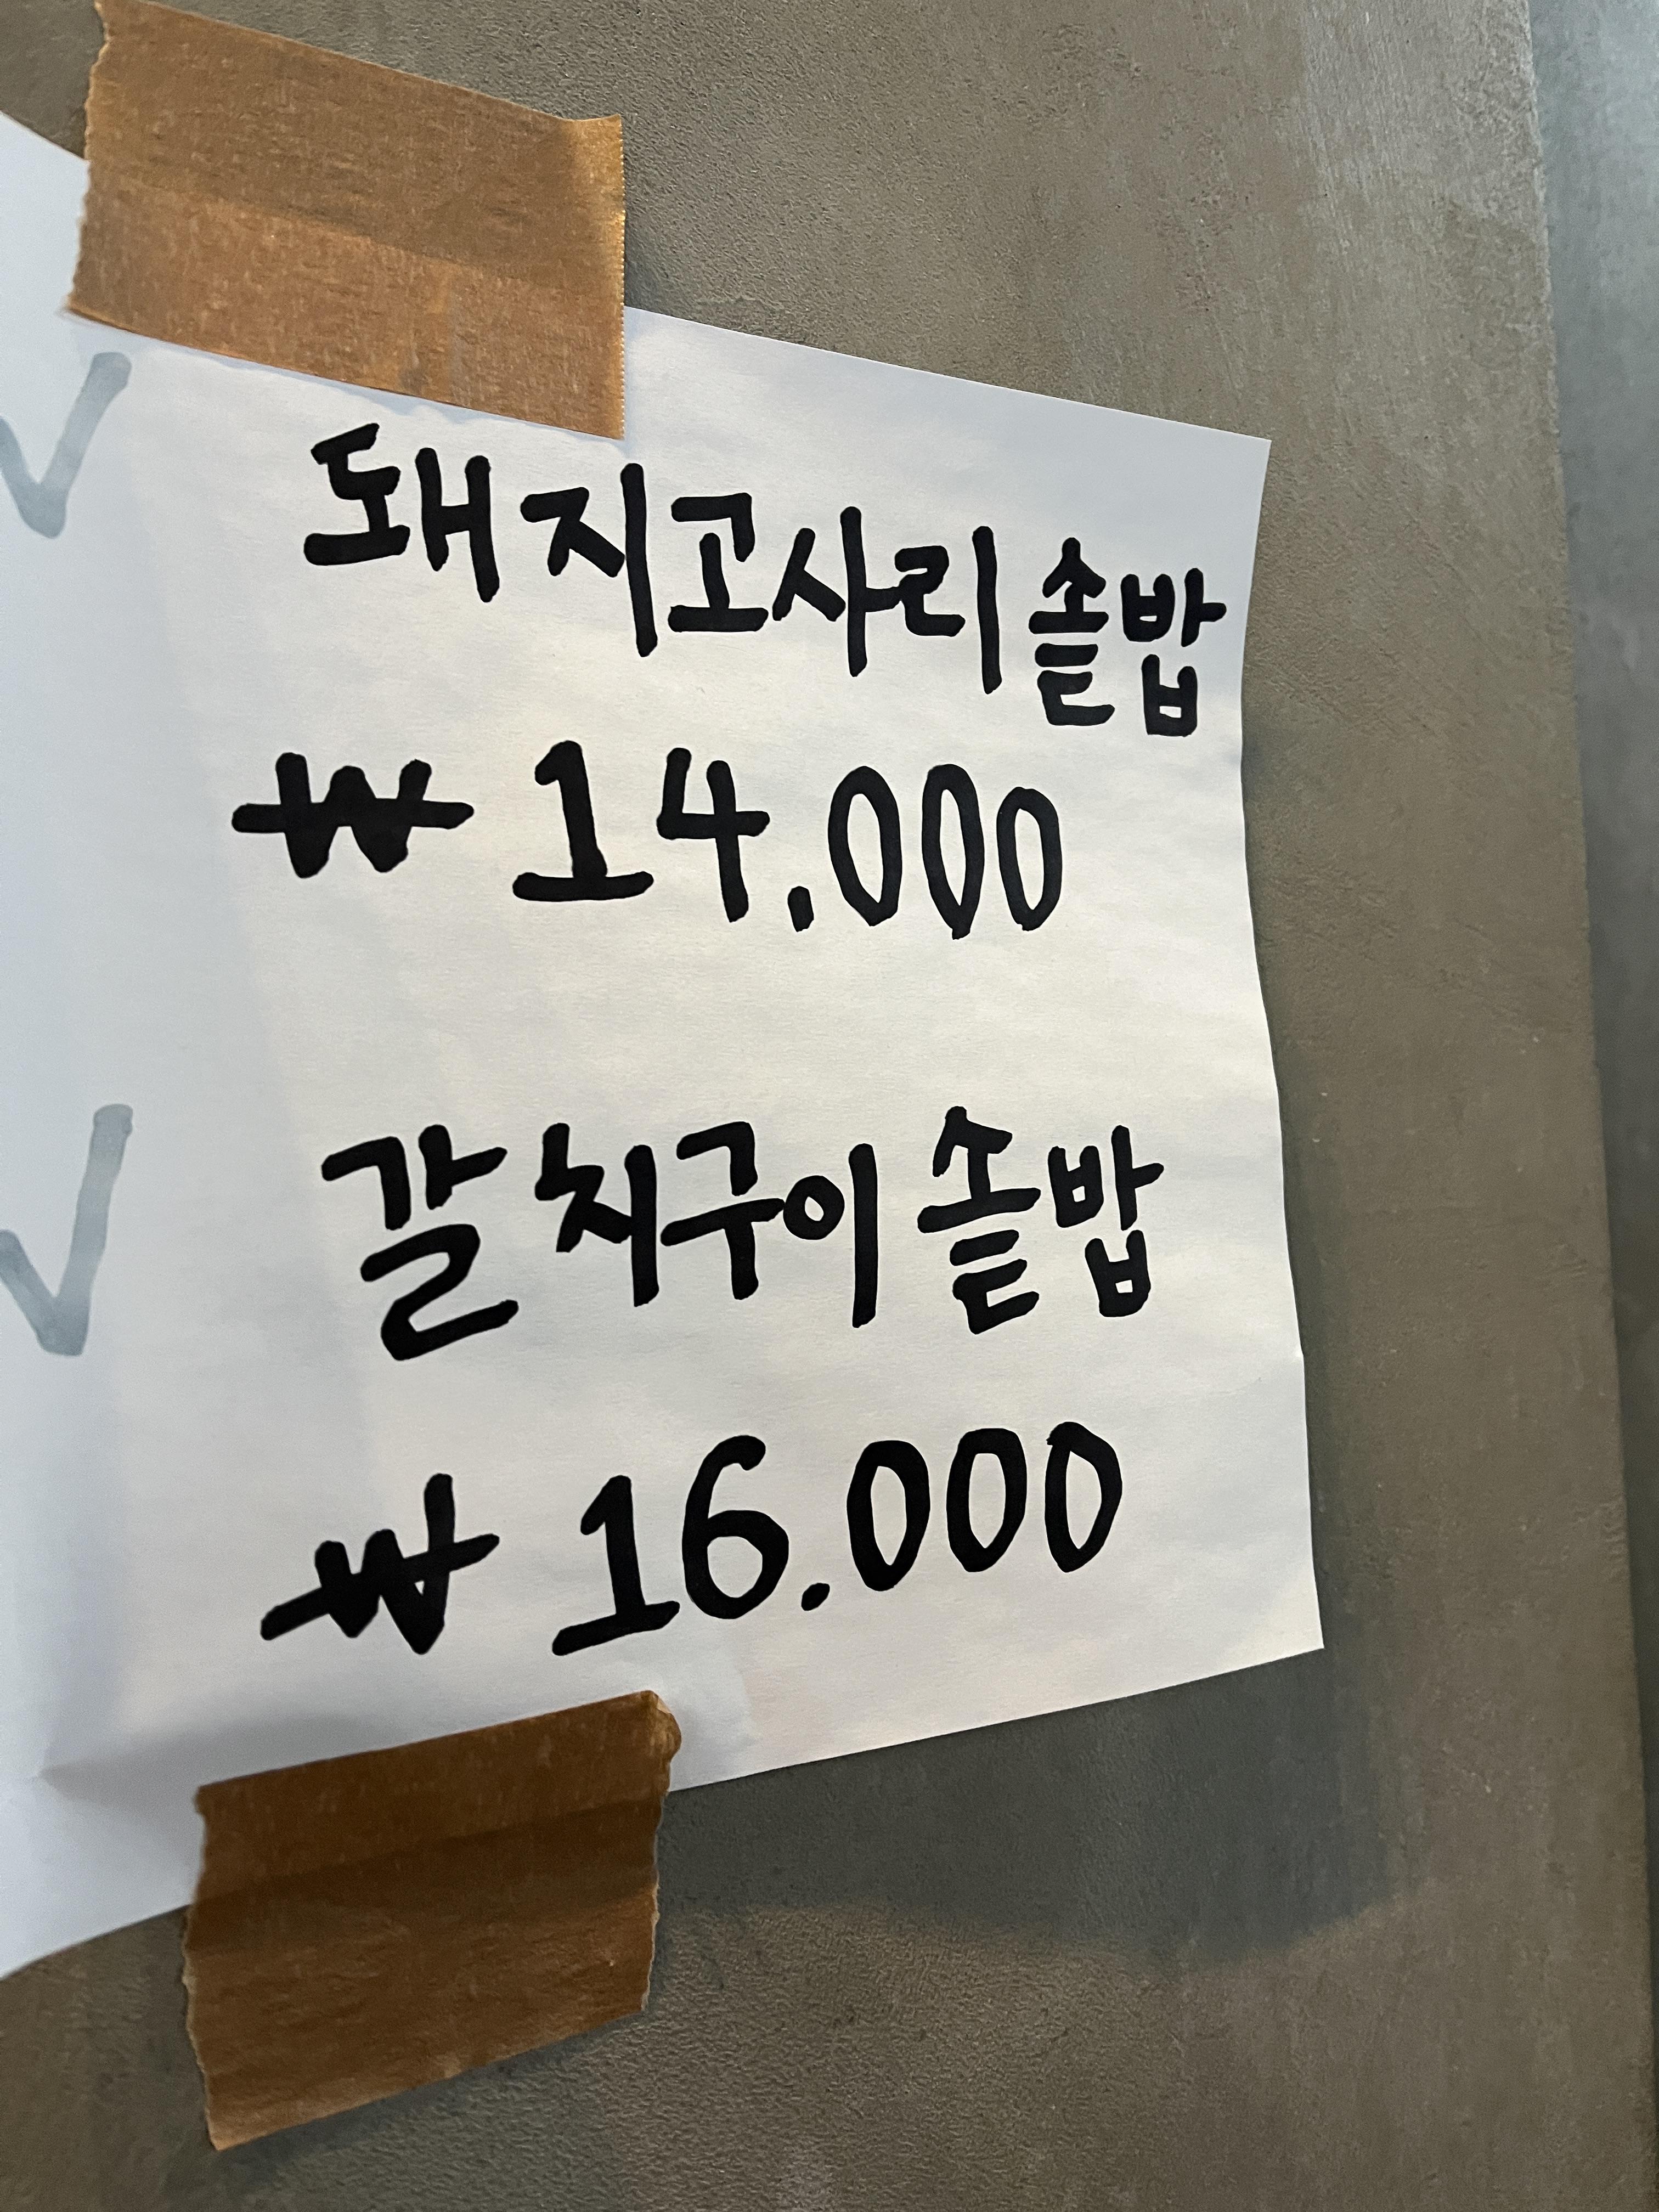 돼지고사리 솥밥
₩ 14.000
갈치구이 솥밥
₩ 16.000